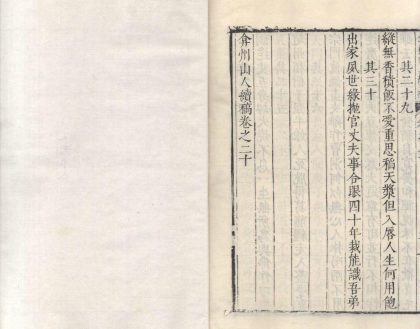 其二十九
縱無香積飯不愛重思稻天漿但入唇人生何用飽
其三十
出家夙世緣撫官丈夫事今眼四十年裁能識吾弟
弇州山人續稿卷之二十